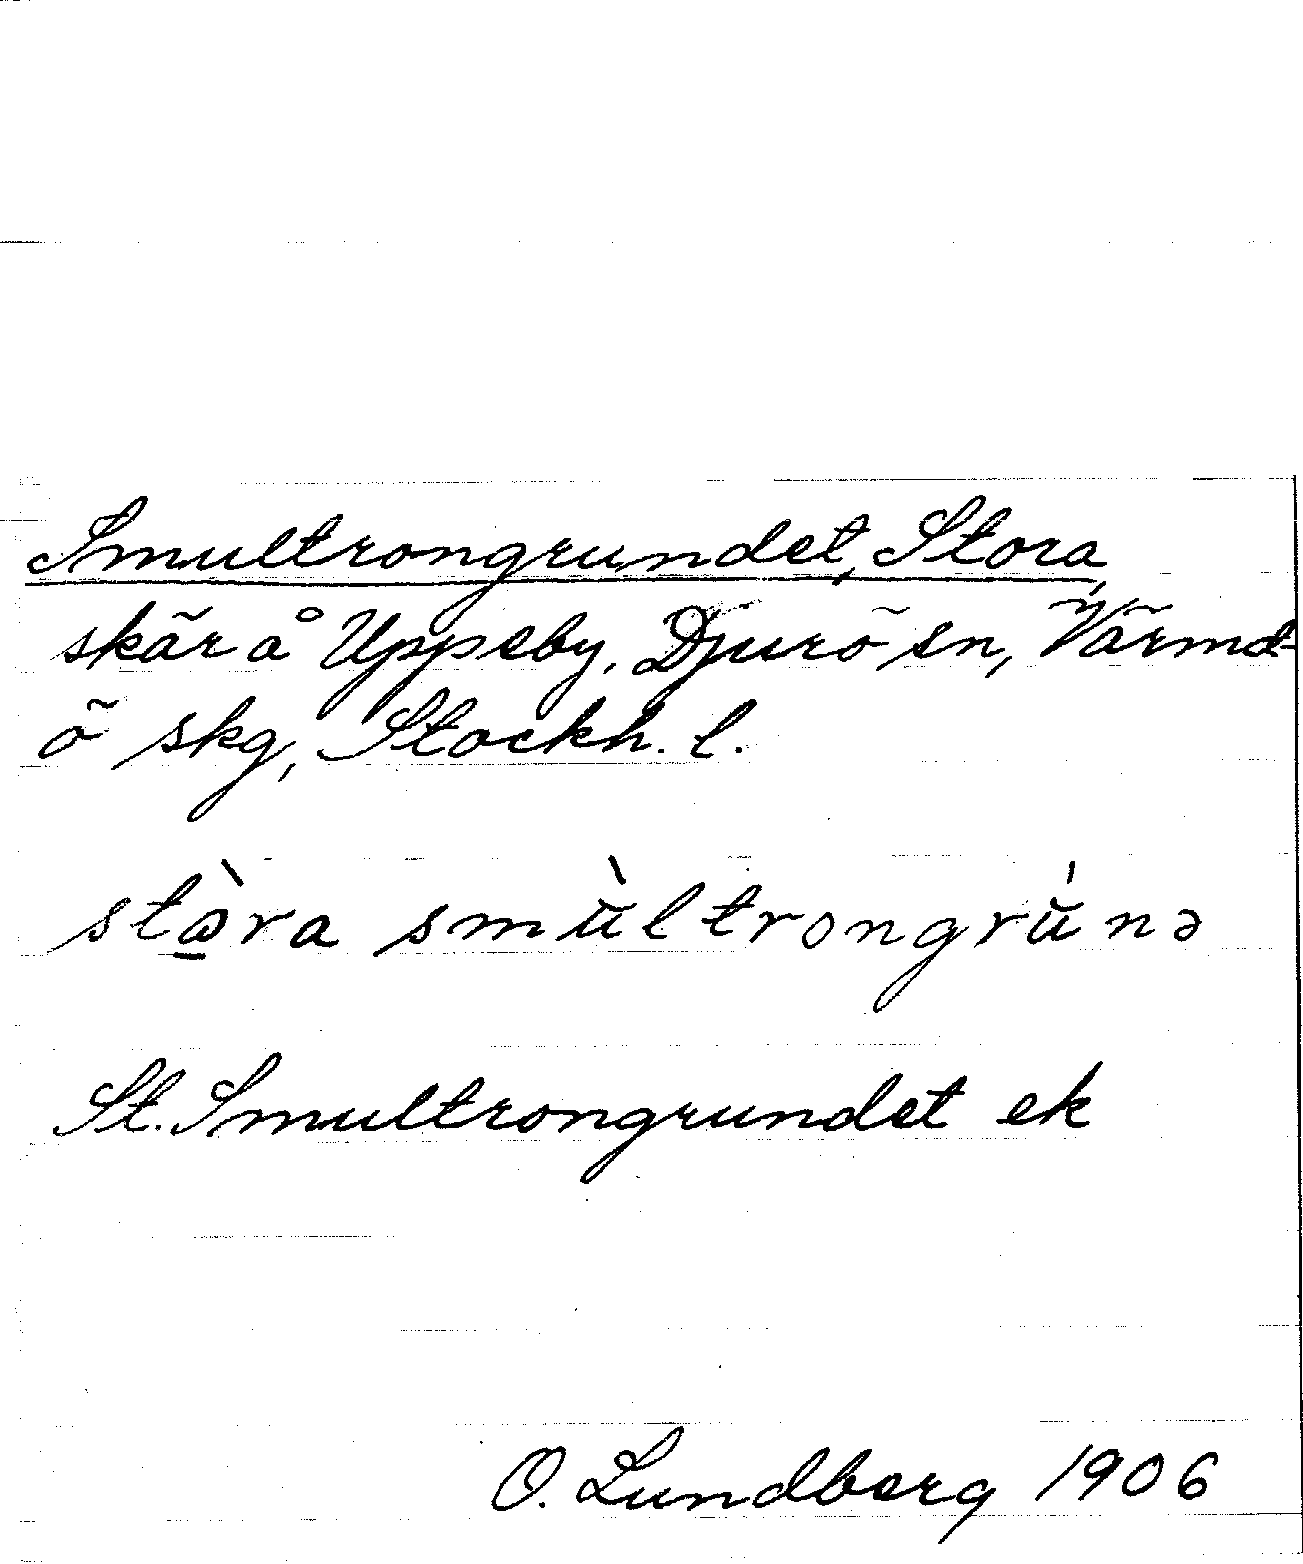 Smultrongrundet, Stora,
skär å Uppeby, Djurö sn, Värmd-
ö skg, Stockh. l.
stⱥ̀ra smùltrongrùnə
St. Smultrongrundet ek
O. Lundberg 1906